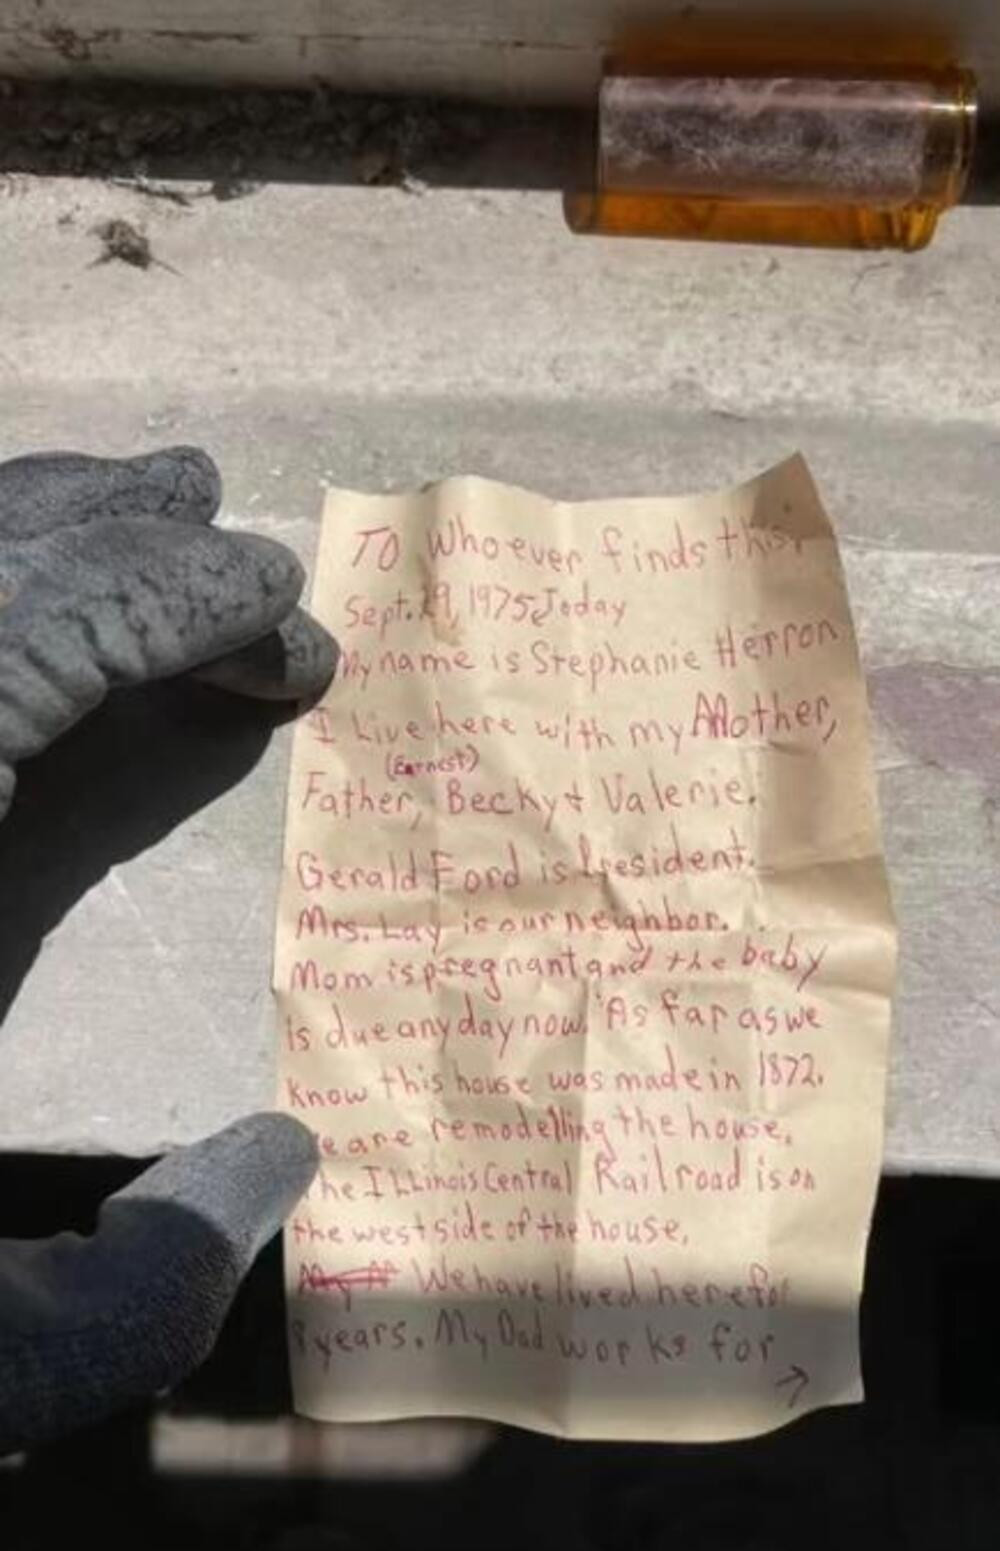 To Whoever finds this,
Sept. 29, 1975 Today
My name is Stephanie Herron
I Live here with my Mother,
(Earnest)
Father, Becky & Valerie.
Gerald Ford is President.
Mrs. Lay is our neighbor.
Mom is pregnant and the baby
is due any day now. As far as we
know this house was made in 1872.
We are remodelling the house.
The ILLinois Central Railroad is on
the west side of the house.
We have lived here for
years. My Dad works for
→